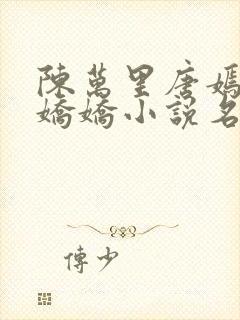 陳萬里唐嫣
嬌嬌小說名
傅少